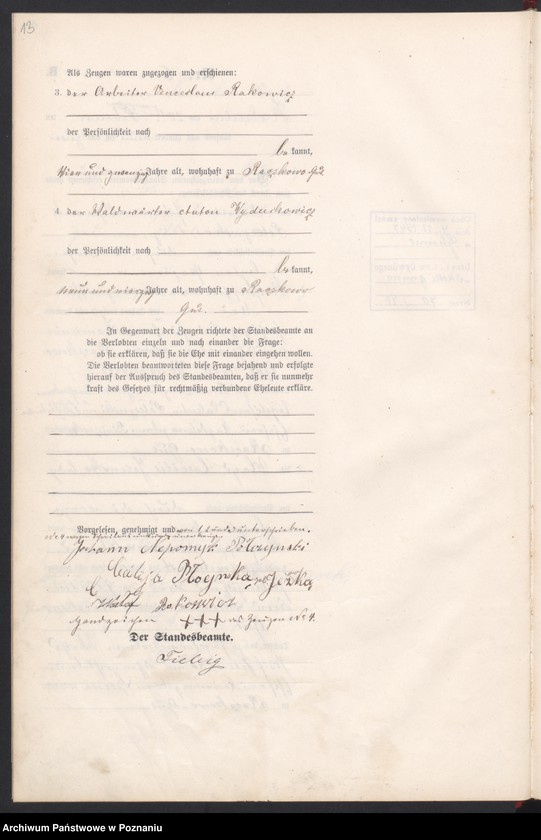 13
Als Zeugen waren zugezogen und erschienen:
3. der Arbeiter Venceslaus Rakowicz
der Persönlichkeit nach
be kannt,
Vier und zwanzig Jahre alt, wohnhaft zu Raczkowo Gut
4. der Waldwärter Anton
der Persönlichkeit nach
be kannt,
neun und vierzig Jahre alt, wohnhaft zu Raczkowo
Gut.
In Gegenwart der Zeugen richtete der Standesbeamte an
die Verlobten einzeln und nach einander die Frage:
ob sie erklären, daß sie die Ehe mit einander eingehen wollen.
Die Verlobten beantworteten diese Frage bejahend und erfolgte
hierauf der Ausspruch des Standesbeamten, daß er sie nunmehr
kraft des Gesetzes für rechtmäßig verbundene Eheleute erkläre.
Vorgelesen, genehmigt und von 1, 2 und 3 unterschrieben.
Johann Nepomyk
Rakowicz
Handzeichen +++ des Zeugen No 4.
Der Standesbeamte.
Archiwum Państwowe w Poznaniu